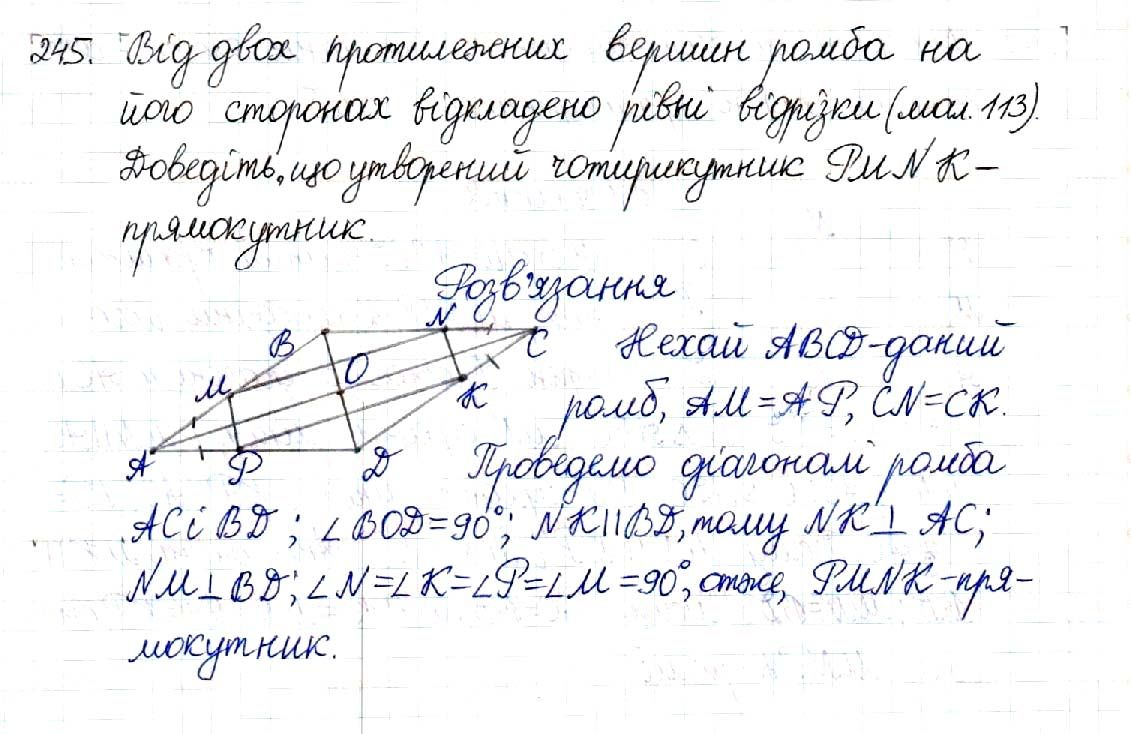 245. Від двох протилежних вершин ромба на
його сторонах відкладено рівні відрізки (мал. 113).
Доведіть, що утворений чотирикутник PMNK –
прямокутник.
Розв'язання
B N C
O
M K
A P D
Нехай ABCD - даний
ромб, AM = AP, CN = CK.
Проведемо діагоналі ромба
AC і BD; ∠BOD = 90°; NK || BD, тому NK ⊥ AC;
NM ⊥ BD; ∠N = ∠K = ∠P = ∠M = 90°, отже, PMNK - пря-
мокутник.